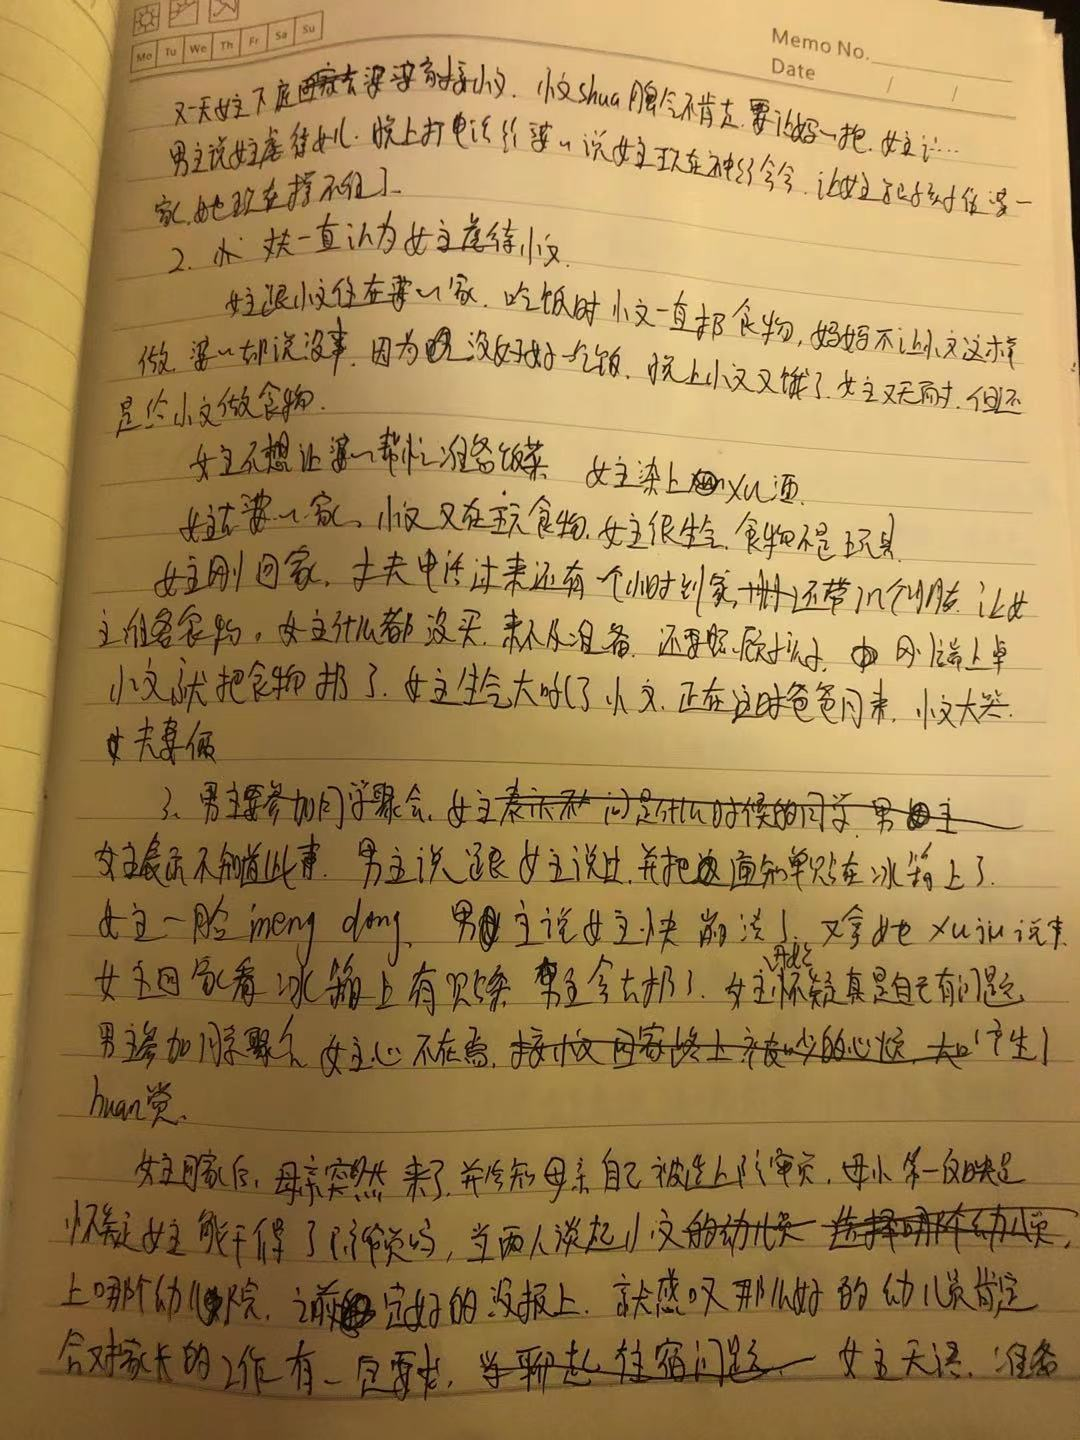 Memo No.
Mo Tu We Th Fr Sa Su
Date / /
又一天女主下庭去婆婆家接小文，小文shua脾气不肯走，要让妈妈抱，女主
男主说女主虐待女儿，晚上打电话给婆〃说女主现在神经兮兮，让女主
家，她现在撑不住了。
2. 丈夫一直认为女主虐待小文
女主跟小文住在婆〃家，吃饭时小文一直扔食物，妈妈不让小文这样
做，婆〃却说没事，因为没好好吃饭，晚上小文又饿了，女主又无奈，但还
是给小文做食物．
女主不想让婆〃帮忙准备饭菜 女主染上xu酒
女主去婆〃家，小文又在玩食物，女主很生气，食物不是玩具
女主刚回家，丈夫电话过来还有一个小时到家，还带几个朋友 让女
主准备食物，女主什么都没买，来不及准备，还要照顾孩子，刚端上桌
小文就把食物扔了，女主生气大吼了小文，正在这时爸爸回来，小文大哭．
夫妻俩
3. 男主要参加同学聚会，女主表示不 问是什么时候的同学，男主
女主表示不知道此事．男主说跟女主说过，并把通知单贴在冰箱上了．
女主一脸meng dong，男主说女主快崩溃了，又拿她xu jiu说事
女主回家看冰箱上有贴条 男主拿去扔了．女主怀疑真是自己有问题
男主参加同学聚会，女主心不在焉，接小文回家路上 产生了
huan觉．
女主回家后，母亲突然来了，并告知母亲自己被选上陪审员，母亲第一反映是
怀疑女主能干得了陪审员吗，当两人谈起小文的幼儿员 选择哪个幼儿员，
上哪个幼儿院，之前定好的没报上．就感叹那么好的幼儿员肯定
会对家长的工作有一定要求，当聊起住宿问题， 女主无语，准备